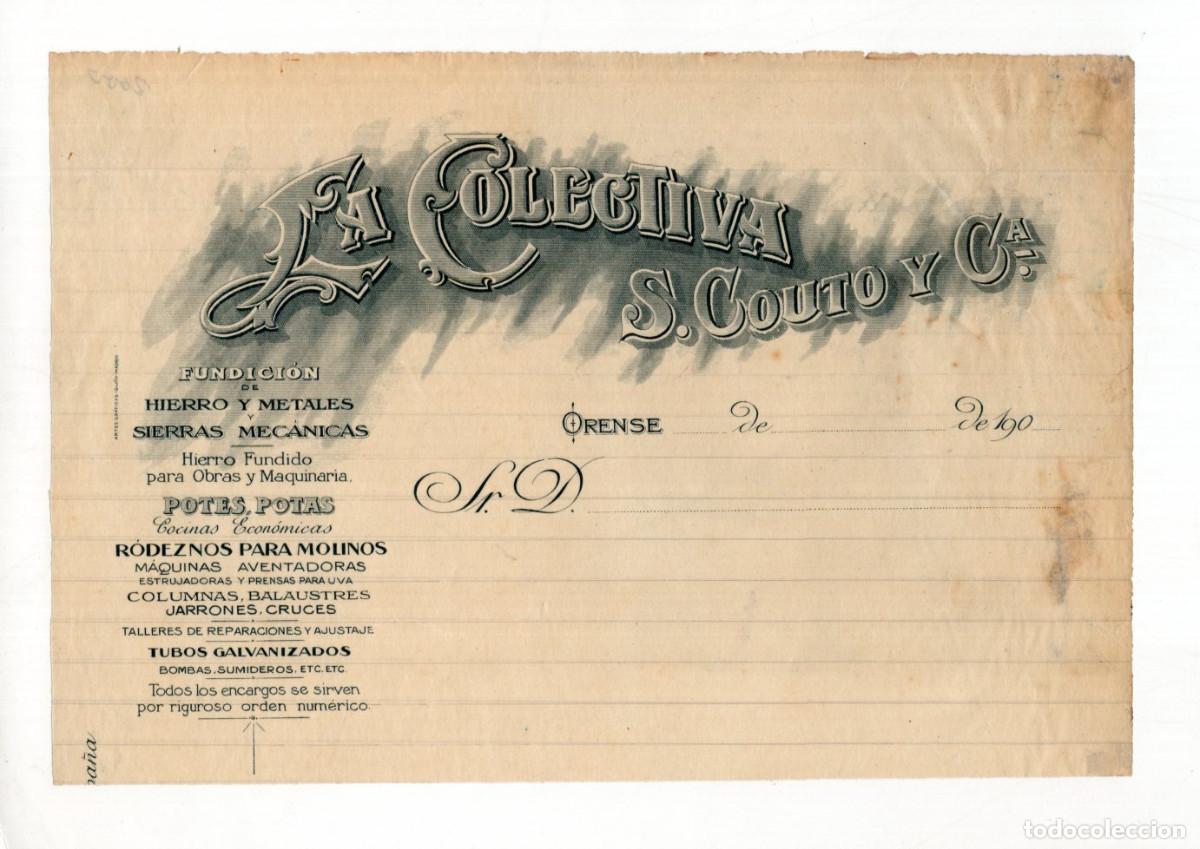 LA COLECTIVA
S. COUTO Y CA.
FUNDICIÓN
DE
HIERRO Y METALES
Y
SIERRAS MECÁNICAS
Hierro Fundido
para Obras y Maquinaria.
POTES, POTAS
Cocinas Económicas
RÓDEZNOS PARA MOLINOS
MÁQUINAS AVENTADORAS
ESTRUJADORAS Y PRENSAS PARA UVA
COLUMNAS, BALAUSTRES
JARRONES, CRUCES
TALLERES DE REPARACIONES Y AJUSTAJE
TUBOS GALVANIZADOS
BOMBAS, SUMIDEROS, ETC. ETC.
Todos los encargos se sirven
por riguroso orden numérico.
ORENSE de de 190
Sr. D.
paña
todocoleccion